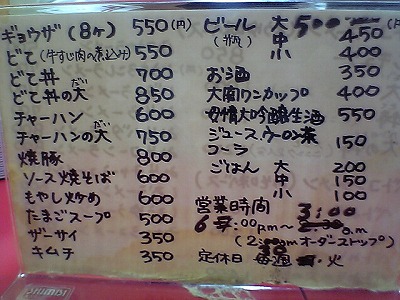 ギョウザ (8ヶ) 550(円)
どて(牛すじ肉の煮込み) 550
どて丼 700
どて丼の大(だい) 850
チャーハン 600
チャーハンの大(だい) 750
焼豚 800
ソース焼そば 600
もやし炒め 600
たまごスープ 500
ザーサイ 350
キムチ 350
ビール 大 500
(瓶) 中 450
小 400
お酒 350
大関ワンカップ 400
大吟醸生酒 550
ジュース ウーロン茶
コーラ 150
ごはん 大 200
中 150
小 100
営業時間 3:00
6時:00pm〜 a.m
(2: m オーダーストップ)
定休日 毎週 火